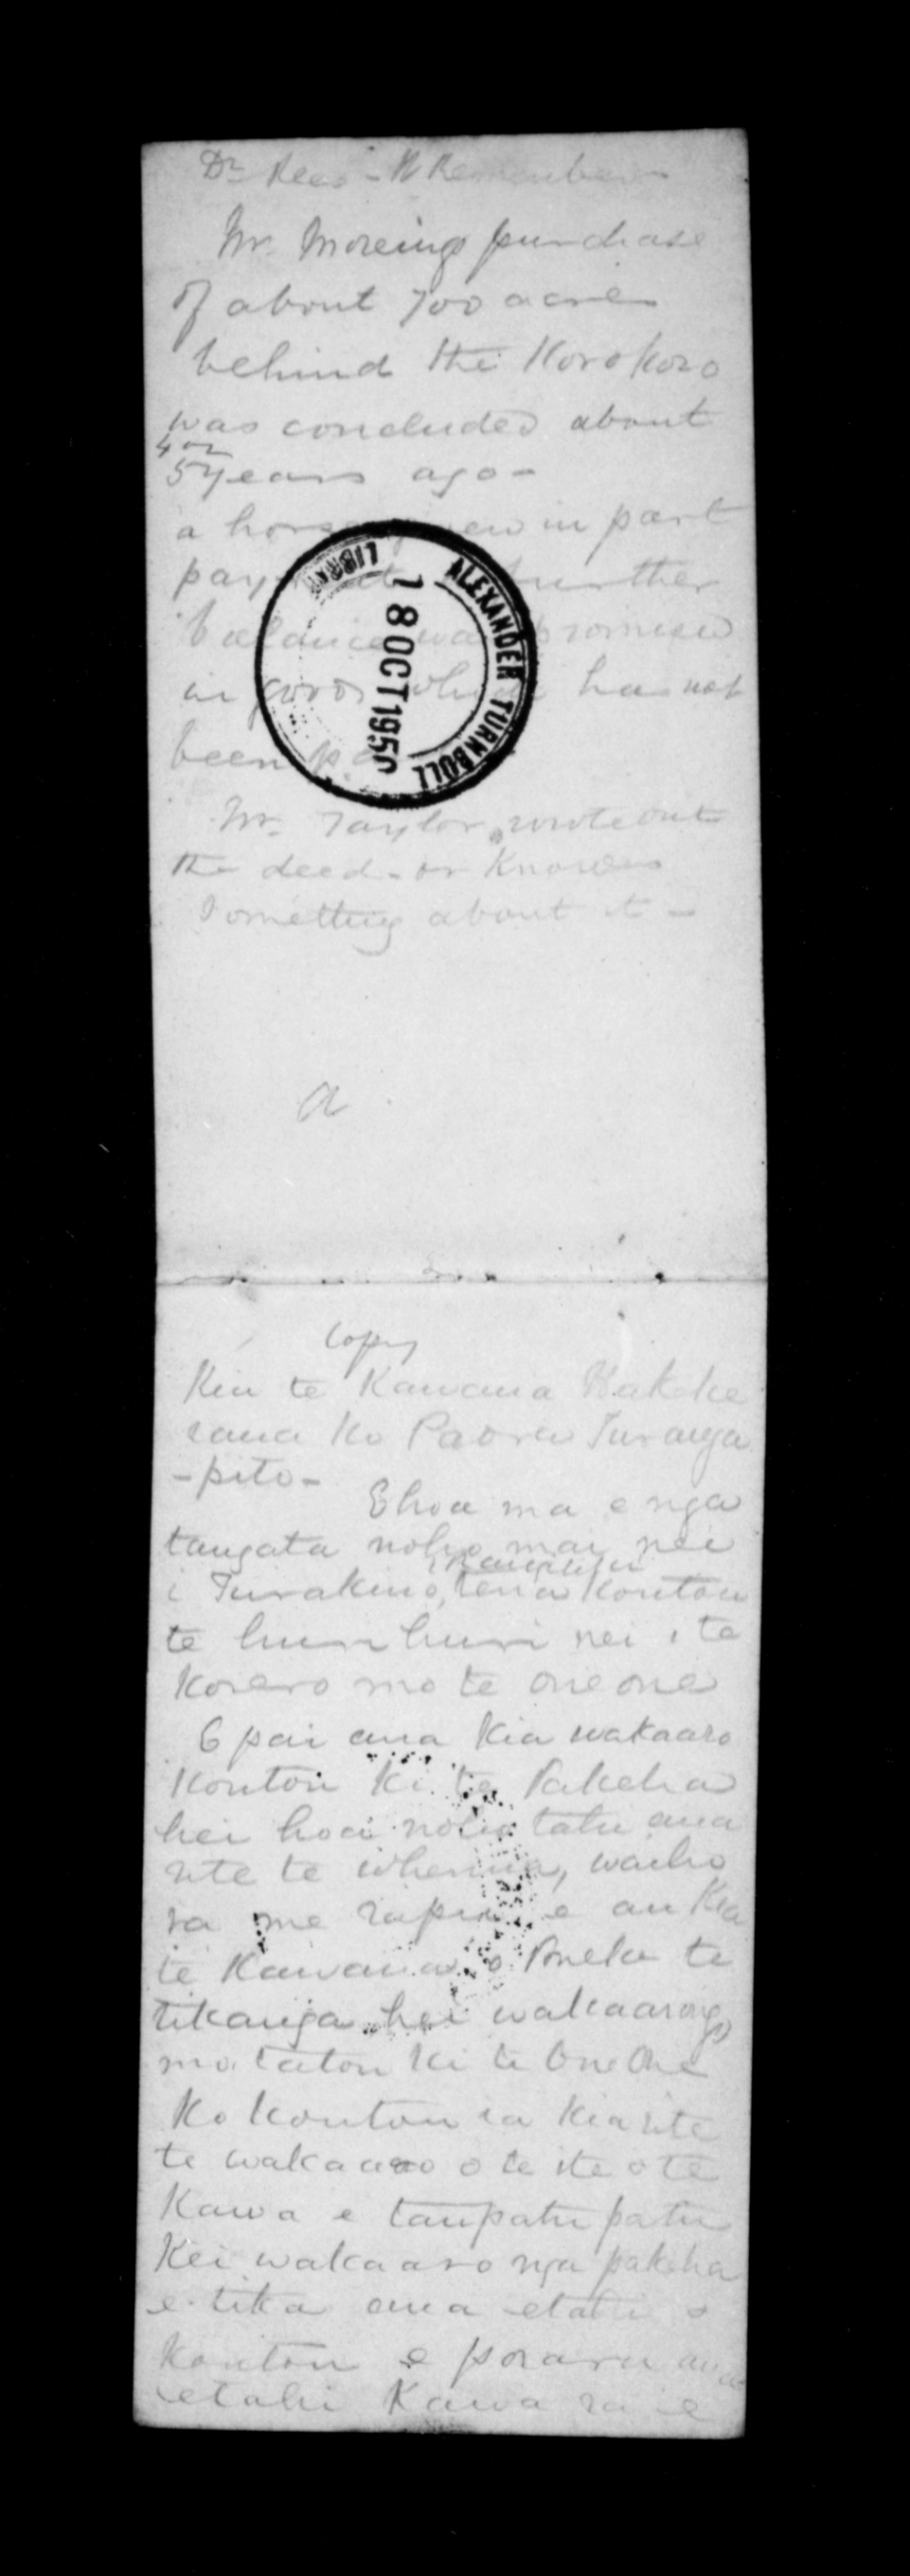 Dr Rees - 
Mr. Moreing purchase
of about 700 acres
behind the Korokoro
was concluded about
4 or
5 years ago -
a horse given in part
payment further
balance was promised
in goods which has not
been
Mr. Taylor wrote out
the deed - or knows
something about it -
LIBRARY
ALEXANDER TURNBULL
18 OCT 1950
a
Copy
Kia te Kawana 
raua ko Paora Turanga
- pito -
Ehoa ma e nga
tangata noho mai nei
i Turakina, tena koutou
te huri huri nei i te
korero mo te one one
E pai ana kia wakaaro
koutou ki te Pakeha
hei hoa noho tahi ana
rite te whenua, waiho
ra me rapu e au kia
te Kawana o Poneke te
tikanga hei wakaaronga
mo tatou ki te One One
Ko koutou ia kia rite
te wakaaro o te iti o te
Kawa e taupatupatu
Kei wakaaro nga pakeha
e tika ana etahi o
koutou e poraru ana
etahi Kawa ra e